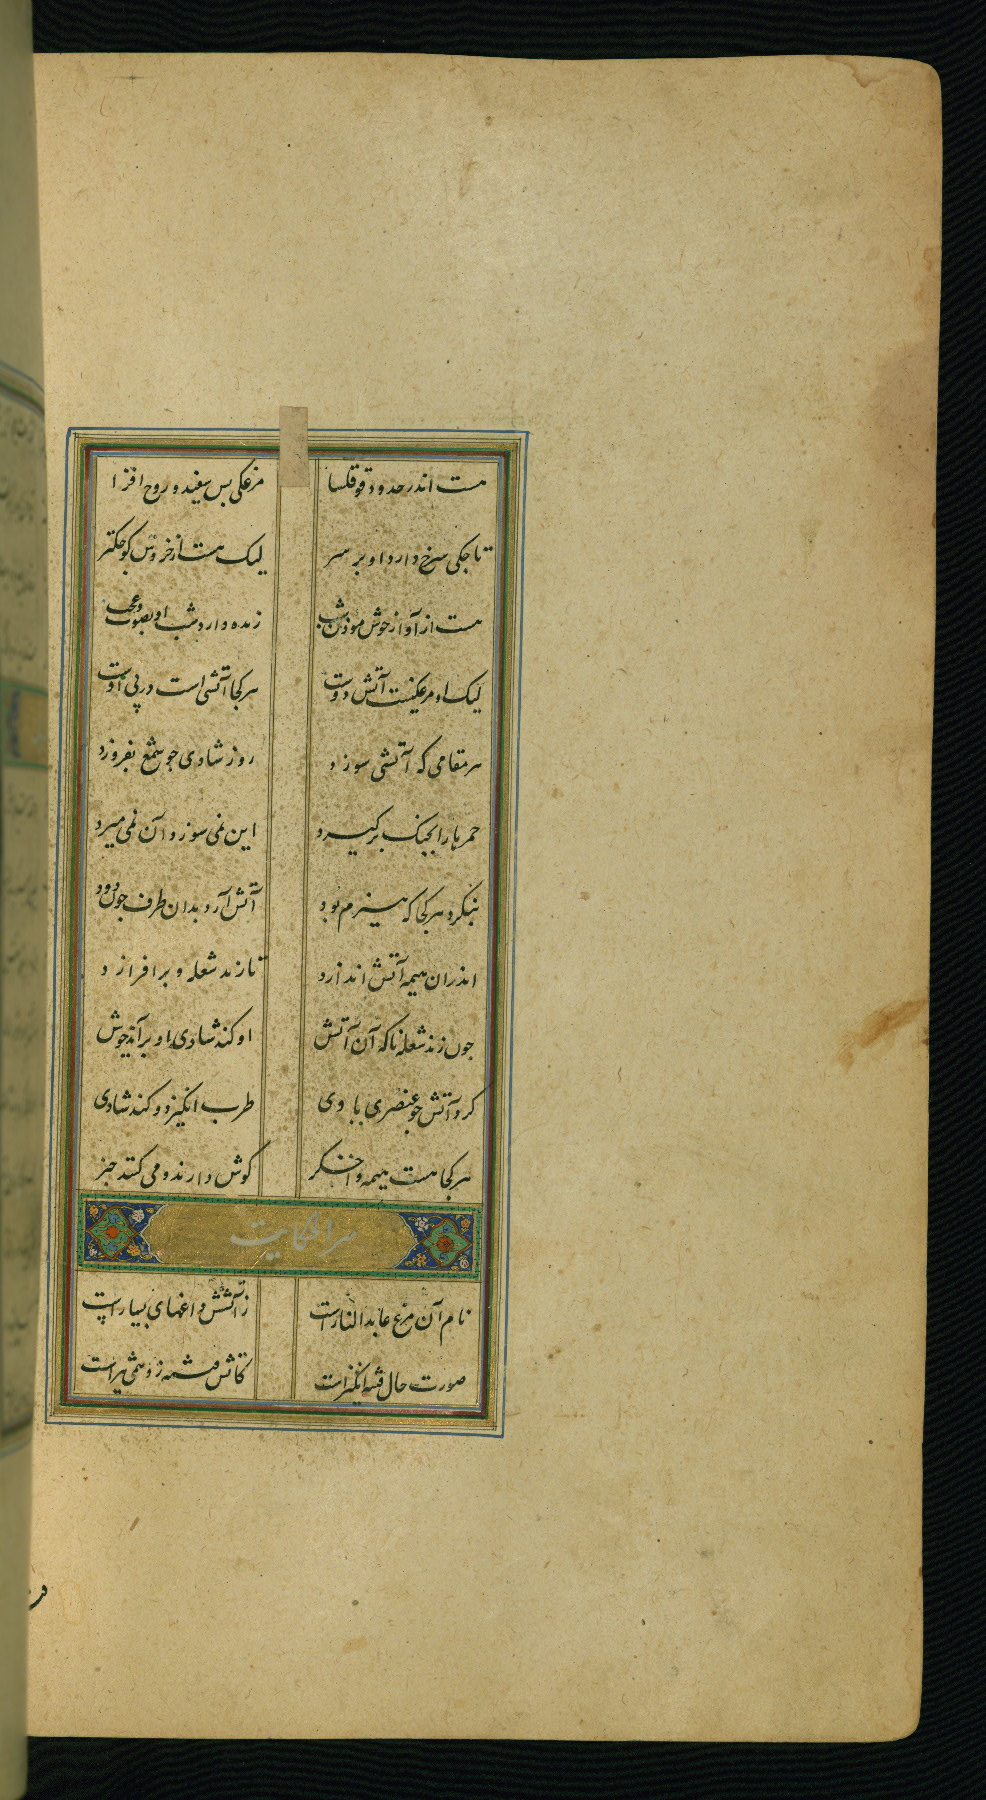 هست اندر حدود قوقلسا مرغکی بس سفید و روح افزا
تاجکی سرخ دارد او بر سر لیک هست از خروس کوچکتر
هست از آواز خوش موذن شب زنده دارد شب او بصوت عجب
لیک او مرغکیست آتش دوست هر کجا آتشی است در پی اوست
هر مقامی که آتشی سوزد روز شادی چو شمع بفروزد
جمرها را بچنک برکیرد این نمی سوزد و آن نمی میرد
بنکرد هر کجا که هیزم بود آتش آرد بدان طرف چون دود
اندران هیمه آتش اندازد تا زند شعله و برافرازد
چون زند شعله ناکه آن آتش او کند شادی و برآید خوش
کرد آتش چو عنصری با وی طرب انکیزد و کند شادی
هر کجا هست هیمه و اخکر کوش دارند و می کنند حذر
سر الحکایت
نام آن مرغ عابد النار است ز آتشش داغهای بسیار است
صورت حال فتنه انکیز است کاتش فتنه زو همی تیز است